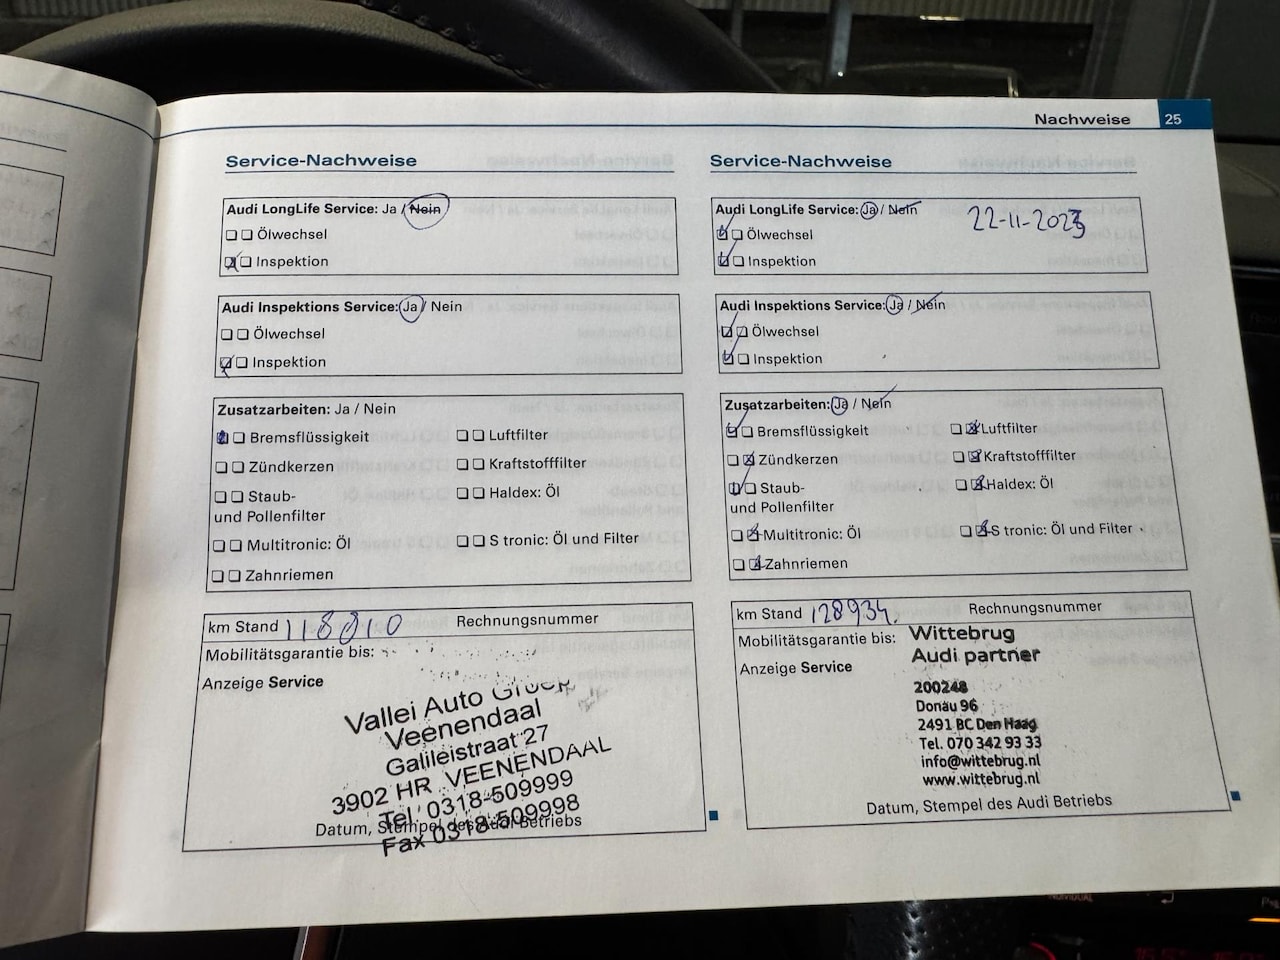 Nachweise 25
Service-Nachweise
Audi LongLife Service: Ja / Nein
Ölwechsel
Inspektion
Audi Inspektions Service: Ja / Nein
Ölwechsel
Inspektion
Zusatzarbeiten: Ja / Nein
Bremsflüssigkeit
Luftfilter
Zündkerzen
Kraftstofffilter
Staub-
und Pollenfilter
Haldex: Öl
Multitronic: Öl
S tronic: Öl und Filter
Zahnriemen
km Stand 118010
Rechnungsnummer
Mobilitätsgarantie bis:
Anzeige Service
Vallei Auto Groep
Veenendaal
Galileistraat 27
3902 HR VEENENDAAL
Tel. 0318-509999
Fax 0318-509998
Datum, Stempel des Audi Betriebs
Service-Nachweise
Audi LongLife Service: Ja / Nein
22-11-2023
Ölwechsel
Inspektion
Audi Inspektions Service: Ja / Nein
Ölwechsel
Inspektion
Zusatzarbeiten: Ja / Nein
Bremsflüssigkeit
Luftfilter
Zündkerzen
Kraftstofffilter
Staub-
und Pollenfilter
Haldex: Öl
Multitronic: Öl
S tronic: Öl und Filter
Zahnriemen
km Stand 128934
Rechnungsnummer
Mobilitätsgarantie bis:
Anzeige Service
Wittebrug
Audi partner
200248
Donau 96
2491 BC Den Haag
Tel. 070 342 93 33
info@wittebrug.nl
www.wittebrug.nl
Datum, Stempel des Audi Betriebs